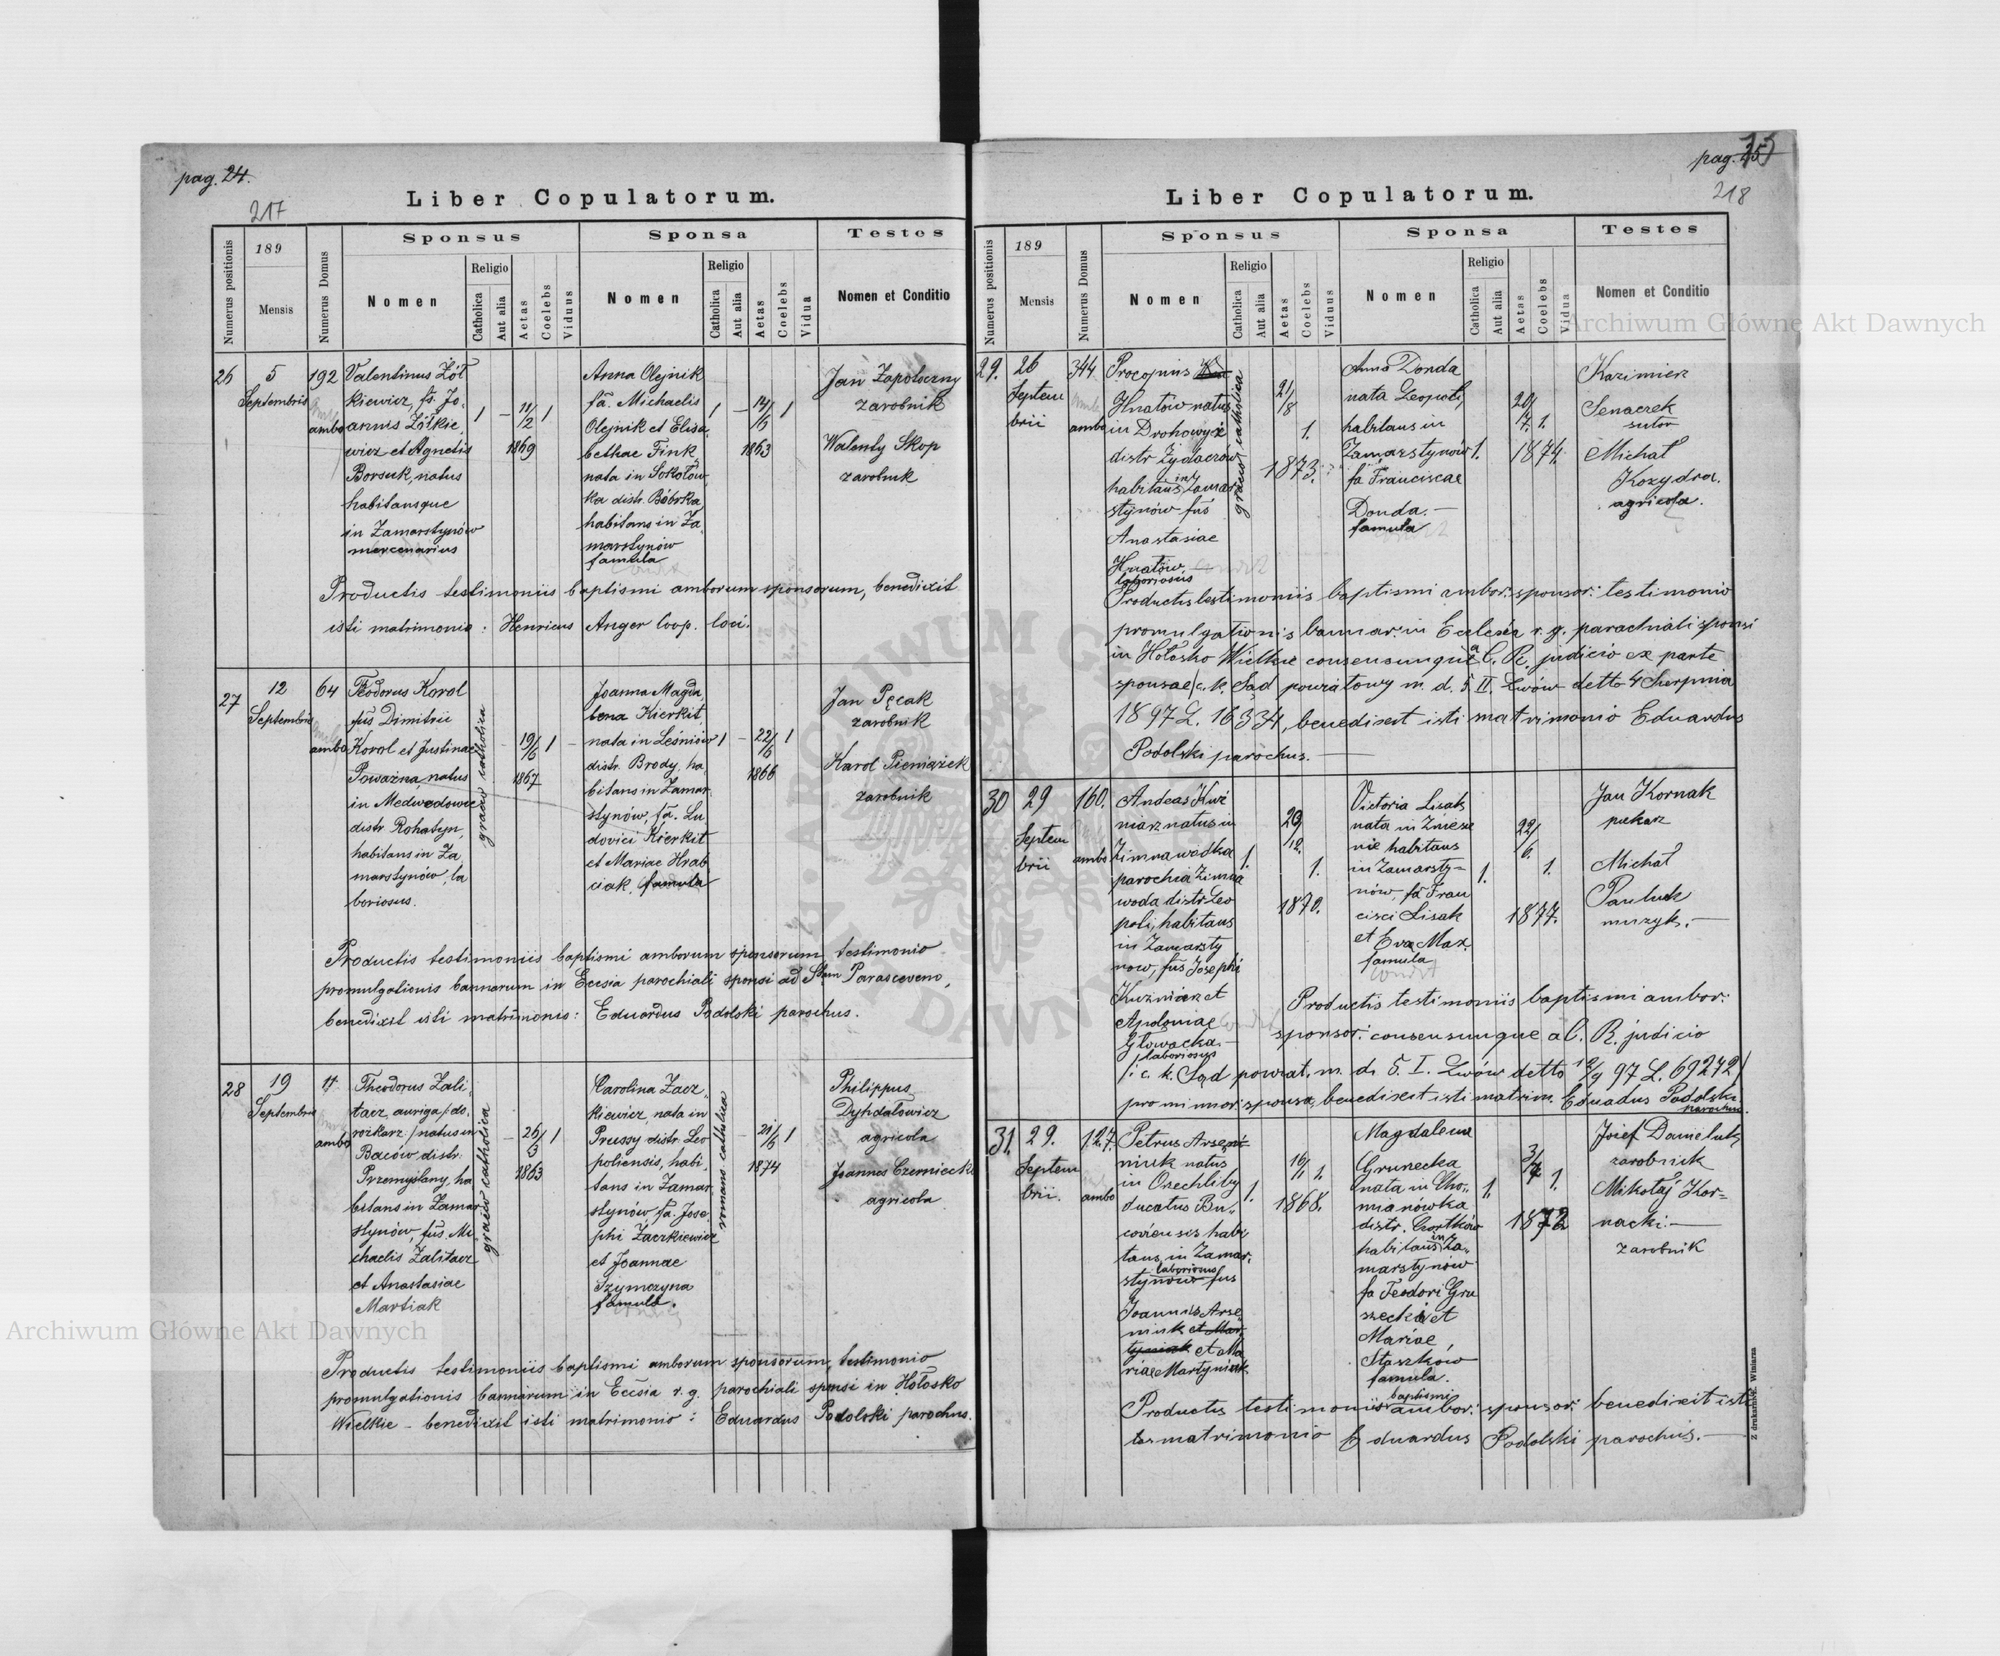 pag. 24.
217
Liber Copulatorum.
Numerus positionis
189
Mensis
Numerus Domus
Sponsus
Nomen
Religio
Catholica
Aut alia
Aetas
Coelebs
Viduus
Sponsa
Nomen
Religio
Catholica
Aut alia
Aetas
Coelebs
Vidua
Testes
Nomen et Conditio
26
5
Septembris
192
ambo
Valentinus Żół
kiewicz, fs. Jo,
annis Żółkie,
wicz et Agnetis
Borsuk, natus
habitansque
in Zamarstynów
mercenarius
1
11/2
1869
1
Anna Olejnik
fa. Michaelis
Olejnik et Elisa,
bethae Fink,
nata in Sokołów,
ka distr. Bóbrka
habitans in Za
marstynów
famula
1
1863
1
Jan Zapotoczny
zarobnik
Walenty Skop
zarobnik
Productis testimoniis baptismi amborum sponsorum, benedixit
isti matrimonio: Henricus Anger Coop. loci.
27
12
Septembris
64
ambo
Teodorus Korol
fus Dimitrii
Korol et Justinae
Poważna, natus
in Medwedowce
distr Rohatyn,
habitans in Za
marstynów, la
boriosus.
graeco catholica
19/6
1867
1
Joanna Magda,
lena Kierkit,
nata in Leśniów
distr. Brody, ha,
bitans in Zamar
stynów, fa. Lu,
dovici Kierkit
et Mariae Hrab
ciak, famula
1
22/6
1866
1
Jan Pęcak
zarobnik
Karol Pieniążek
zarobnik
Productis testimoniis baptismi amborum sponsorum, testimonio
promulgationis bannarum in Eccsia parochiali sponsi ad Stam Parasceveno,
benedixit isti matrimonio: Eduardus Podolski parochus.
28
19
Septembris
ambo
Theodorus Zali,
tacz, auriga /do,
rożkarz/ natus in
Baców, distr.
Przemyślany, ha
bitans in Zamar
stynów, fus. Mi
chaelis Zalitacz
et Anastasiae
Martiak
graeco catholica
26/3
1863
1
Carolina Zacz,
kiewicz, nata in
Prussy distr. Leo
poliensis, habi,
tans in Zamar
stynów fa. Jose,
phi Zaczkiewicz
et Joannae
Szymczyna
famula.
romano catholica
21/6
1874
1
Philippus
Dyhdałowicz
agricola
Joannes Czerniecki
agricola
Productis testimoniis baptismi amborum sponsorum, testimonio
promulgationis bannarum in Eccsia r. g. parochiali sponsi in Hołosko
Wielkie - benedixit isti matrimonio: Eduardus Podolski parochus.
pag. 25
218
Liber Copulatorum.
Numerus positionis
189
Mensis
Numerus Domus
Sponsus
Nomen
Religio
Catholica
Aut alia
Aetas
Coelebs
Viduus
Sponsa
Nomen
Religio
Catholica
Aut alia
Aetas
Coelebs
Vidua
Testes
Nomen et Conditio
29.
26
Septem
brii
344
ambo
Procopius
Hnatów natus
in Drohowyże
distr Żydaczów
habitans in Zamar
stynów fus
Anastasiae
Hnatów
laboriosus
graeco catholica
21/8
1873.
1.
Anna Donda
nata Leopoli,
habitans in
Zamarstynów
fa Franciscae
Donda. —
famula
1.
20/7.
1874.
1.
Kazimierz
Senaczek
sutor
Michał
Kozydra.
agricola.
Productis testimoniis baptismi ambor: sponsor: testimonio
promulgationis bannar: in Eclesia r. g. parochiali sponsi
in Hołosko Wielkie consensuque a C. R. judicio ex parte
sponsae /c. k. Sąd powiatowy m. d. S. II. Lwów detto 4 Sierpnia
1897 L. 16334, benedixit isti matrimonio Eduardus
Podolski parochus. —
30
29
Septem
brii
160.
ambo
Andeas Kuź
niarz natus in
Zimnawodka
parochia Zimna
woda distr Leo
poli, habitans
in Zamarsty
now, fus Josephi
Kuzniar et
Apoloniae
Głowacka. —
laboriosus
1.
29/12.
1870.
1.
Victoria Lisak
nata in Zniese
nie habitans
in Zamarsty-
nów, fa Fran
cisci Lisak
et Eva Max.
famula
1.
22/6.
1877.
1.
Jan Kornak
piekarz
Michał
Pauluk
muzyk. —
Productis testimoniis baptismi ambor:
sponsor: consensunque a C. R. judicio
/i c. k. Sąd powiat. m. d. S. I. Lwów detto 12/9 97 L. 69272/
pro minor: sponsa, benedixit isti matrim. Eduadus Podolski
parochus.
31.
29.
Septem
brii.
127.
ambo
Petrus Arseni-
niuk natus
in Orechliby
ducatus Bu,,
coviensis habi
tans, in Zamar,
stynów fus
laboriosus
Joannis Arse
niuk et Mar
tyniak et Ma
riae Martyniuk.
1.
16/1
1868.
1.
Magdalena
Grunecka
nata in Cho,,
mianówka
distr. Czortków
habitans in Za,,
marstynów
fa Feodori Gru
szecki et
Mariae
Staszków
famula.
1.
1872
1.
Josef Danieluk
zarobnik
Mikołaj Kor-
nacki —
zarobnik
Productis testimoniis baptismi ambor: sponsor: benedixit isti
tes matrimonio Eduardus Podolski parochus. —
Z drukarni W. Winiarza
Archiwum Główne Akt Dawnych
Archiwum Główne Akt Dawnych